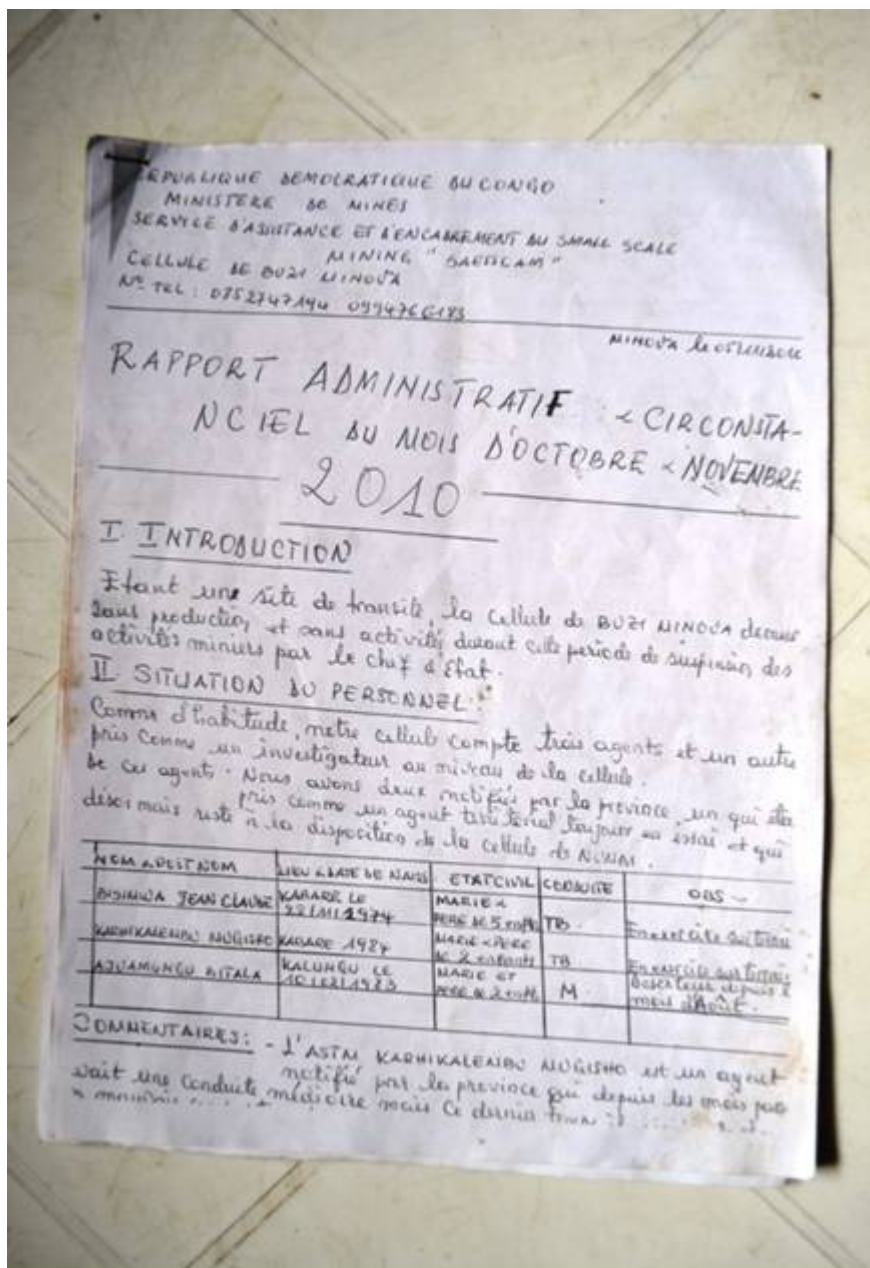 REPUBLIQUE DEMOCRATIQUE DU CONGO
MINISTERE DE MINES
SERVICE D'ASSISTANCE ET D'ENCADREMENT DU SMALL SCALE
MINING "SAESSCAM"
CELLULE DE BUZI MINOVA
N° TEL : 0994766183
MINOVA le
RAPPORT ADMINISTRATIF & CIRCONSTA-
NCIEL DU MOIS D'OCTOBRE & NOVEMBRE
2010
I INTRODUCTION
Etant une site de transite, la cellule de BUZI MINOVA
sans production et sans activités durant cette periode de suspension des
activités miniers par le chef d'Etat.
II SITUATION DU PERSONNEL :
Comme d'habitude, notre cellule compte trois agents et un autre
pris comme un investigateur au niveau de la cellule.
De ces agents. Nous avons deux notifiés par la province, un qui éte
pris comme un agent toujours en essai et qui
désormais reste à la disposition de la cellule de
NOM & POSTNOM LIEU & DATE DE NAISS ETAT CIVIL CONDUITE OBS
BISIMWA JEAN CLAUDE KABARE LE 1974 MARIE & PERE DE 5 enfts TB En exercice sur terrain
KARHIKALEMBU MUGISHO KABARE 1987 MARIE & PERE DE 2 enfants TB En exercice sur terrain
AJUAMUNGU BITALA KALUNGU LE MARIE ET PERE DE 2 enfts M Deserteur depuis le mois d'Août.
COMMENTAIRES : - L'ASTM KARHIKALEMBU MUGISHO est un agent
notifié par la province qui depuis les mois
avait une conduite médiocre mais ce dernier